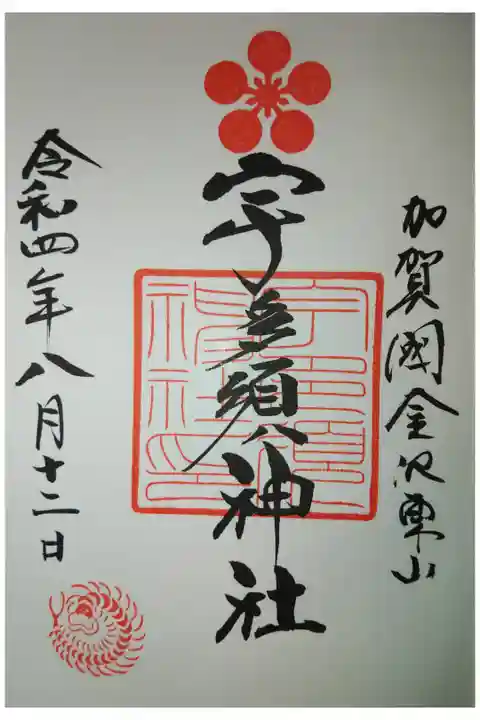 加賀國金沢東山
宇多須神社
令和四年八月十二日